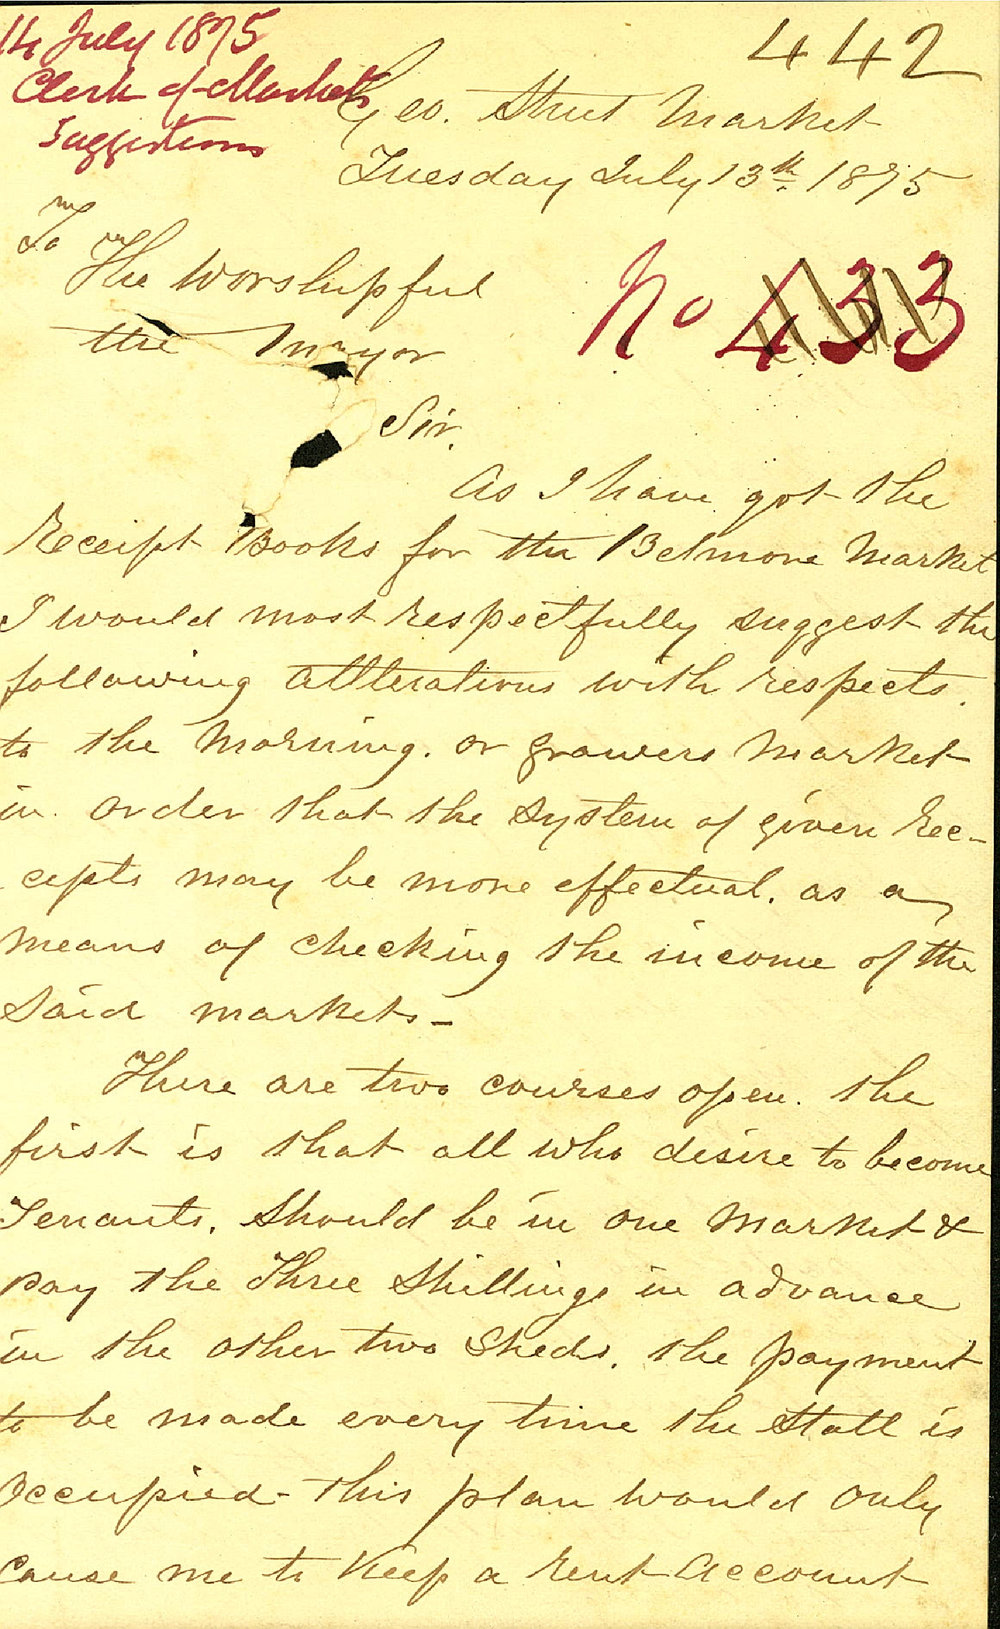 14 July 1875
Clerk of Markets
Suggestions
442
Geo. Street Market
Tuesday July 13th. 1875
To
The Worshipful
the Mayor
No 433
Sir.
As I have got the
Receipt Books for the Belmore Market
I would most respectfully suggest the
following Allterations with respects.
to the Morning. or growers Market
in order that the System of given Rec-
cepts may be more effectual. as a
means of Checking the income of the
Said markets -
There are two courses open. the
first is that all who desire to become
Tenants. Should be in one Market &
pay the Three Shillings in advance
in the other two Sheds. the payment
to be made every time the Stall is
Occupied - this plan would only
Cause me to Keep a Rent Account